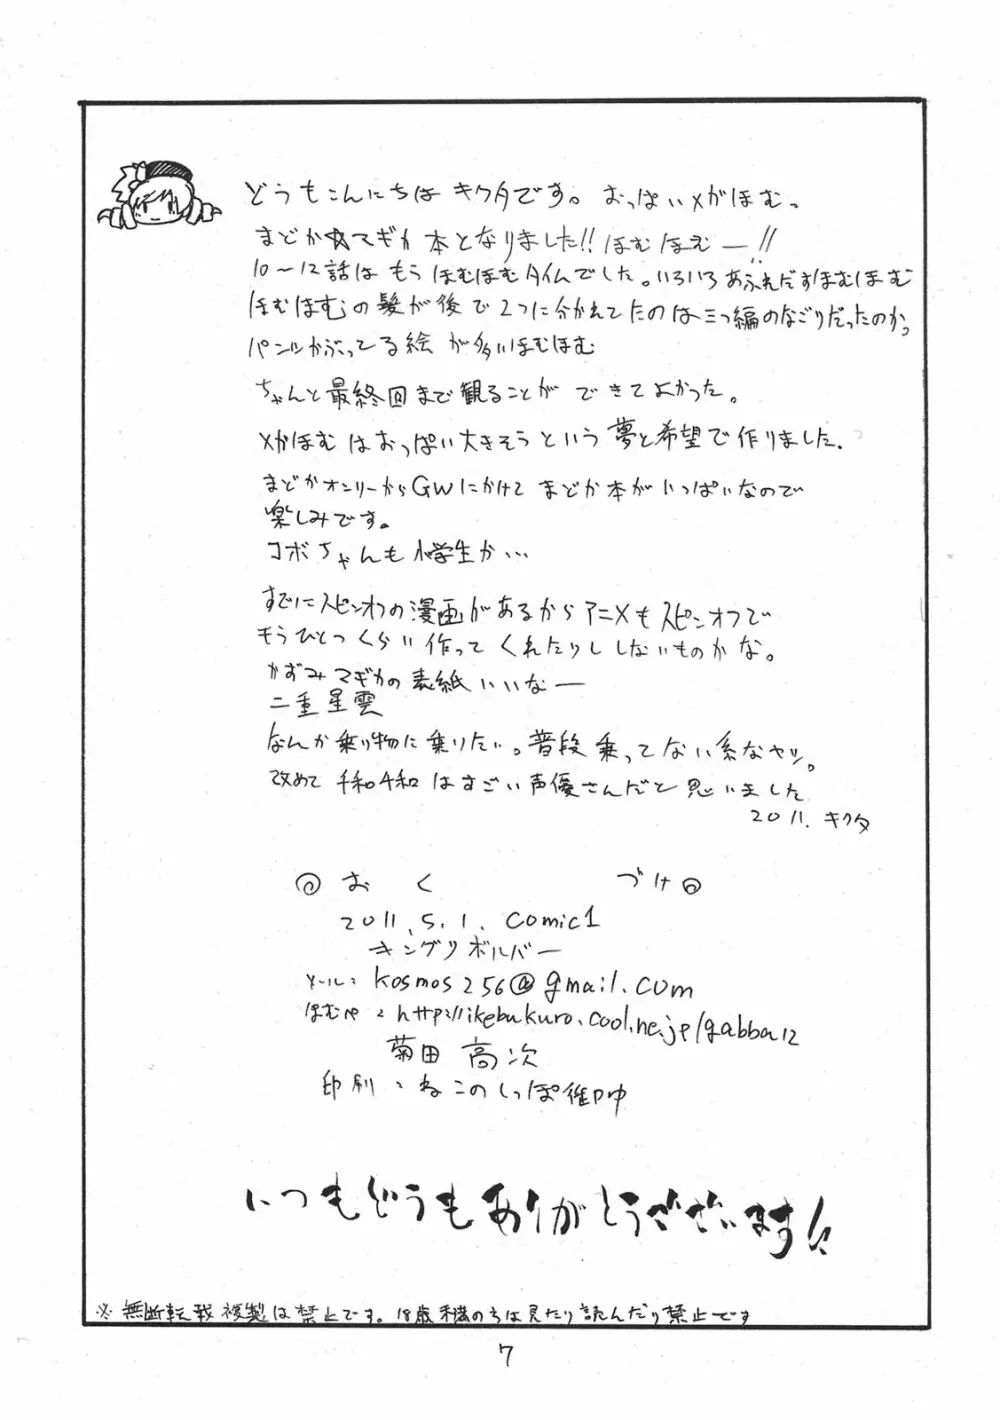 どうもこんにちは キクタです。おっぱいメがほむっ
まどか☆マギカ 本となりました!! ほむほむー!!
10〜12話は もう ほむほむタイムでした。いろいろあふれだすほむほむ
ほむほむの髪が後で2つに分かれてたのは三つ編のなごりだったのか。
パンツかぶってる絵 が多いほむほむ
ちゃんと最終回まで観ることが できてよかった。
メがほむはおっぱい大きそうという夢と希望で作りました.
まどかオンリーからGWにかけて まどか本がいっぱいなので
楽しみです。
コボちゃんも小学生か…
すでにスピンオフの漫画があるからアニメもスピンオフで
もうひとつくらい作って くれたりしないものかな。
かずみマギカの表紙いいなー
二重星雲
なんか乗り物に乗りたい。普段乗ってない系なヤツ。
改めて 千和千和はすごい声優さんだと思いました
2011. キクタ
◎ お く づけ ◎
2011.5.1. comic1
キングリボルバー
メール: kosmos256@gmail.com
ほむぺ: http://ikebukuro.cool.ne.jp/gabba12
菊田 高次
印刷: ねこのしっぽ様
いつもどうもありがとうございます!!
※ 無断転載複製は禁止です。18歳未満の方は見たり読んだり禁止です
7